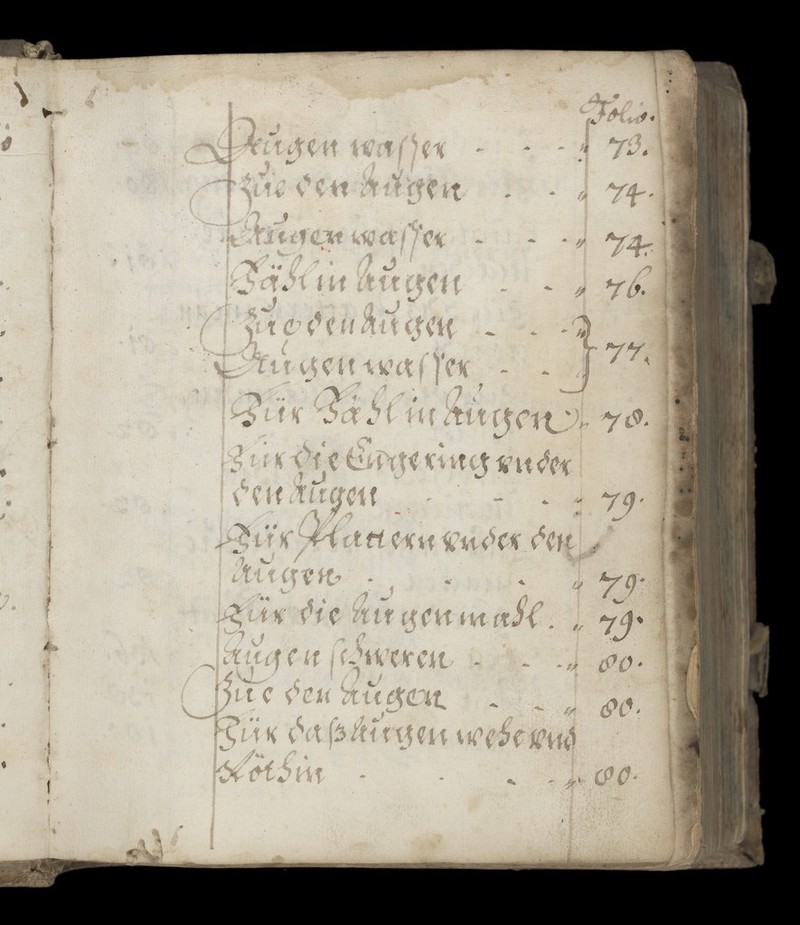 Folio.
Augen wasser - - - " 73.
Zue den Augen - - " 74.
Augen wasser - - - " 74.
Für Fähl in Augen - - " 76.
Zue den Augen - - - "
Augen wasser - - } 77.
Für Fähl in Augen " 78.
Für die Engering vnder
den Augen - - - " 79.
Für Plattern vnder den
Augen - - - " 79.
Für die Augenmahl. " 79.
Augen schweren - - - " 80.
Zue den Augen - - " 80.
Für daß Augen wehe vnd
Röthin - - - - " 80.